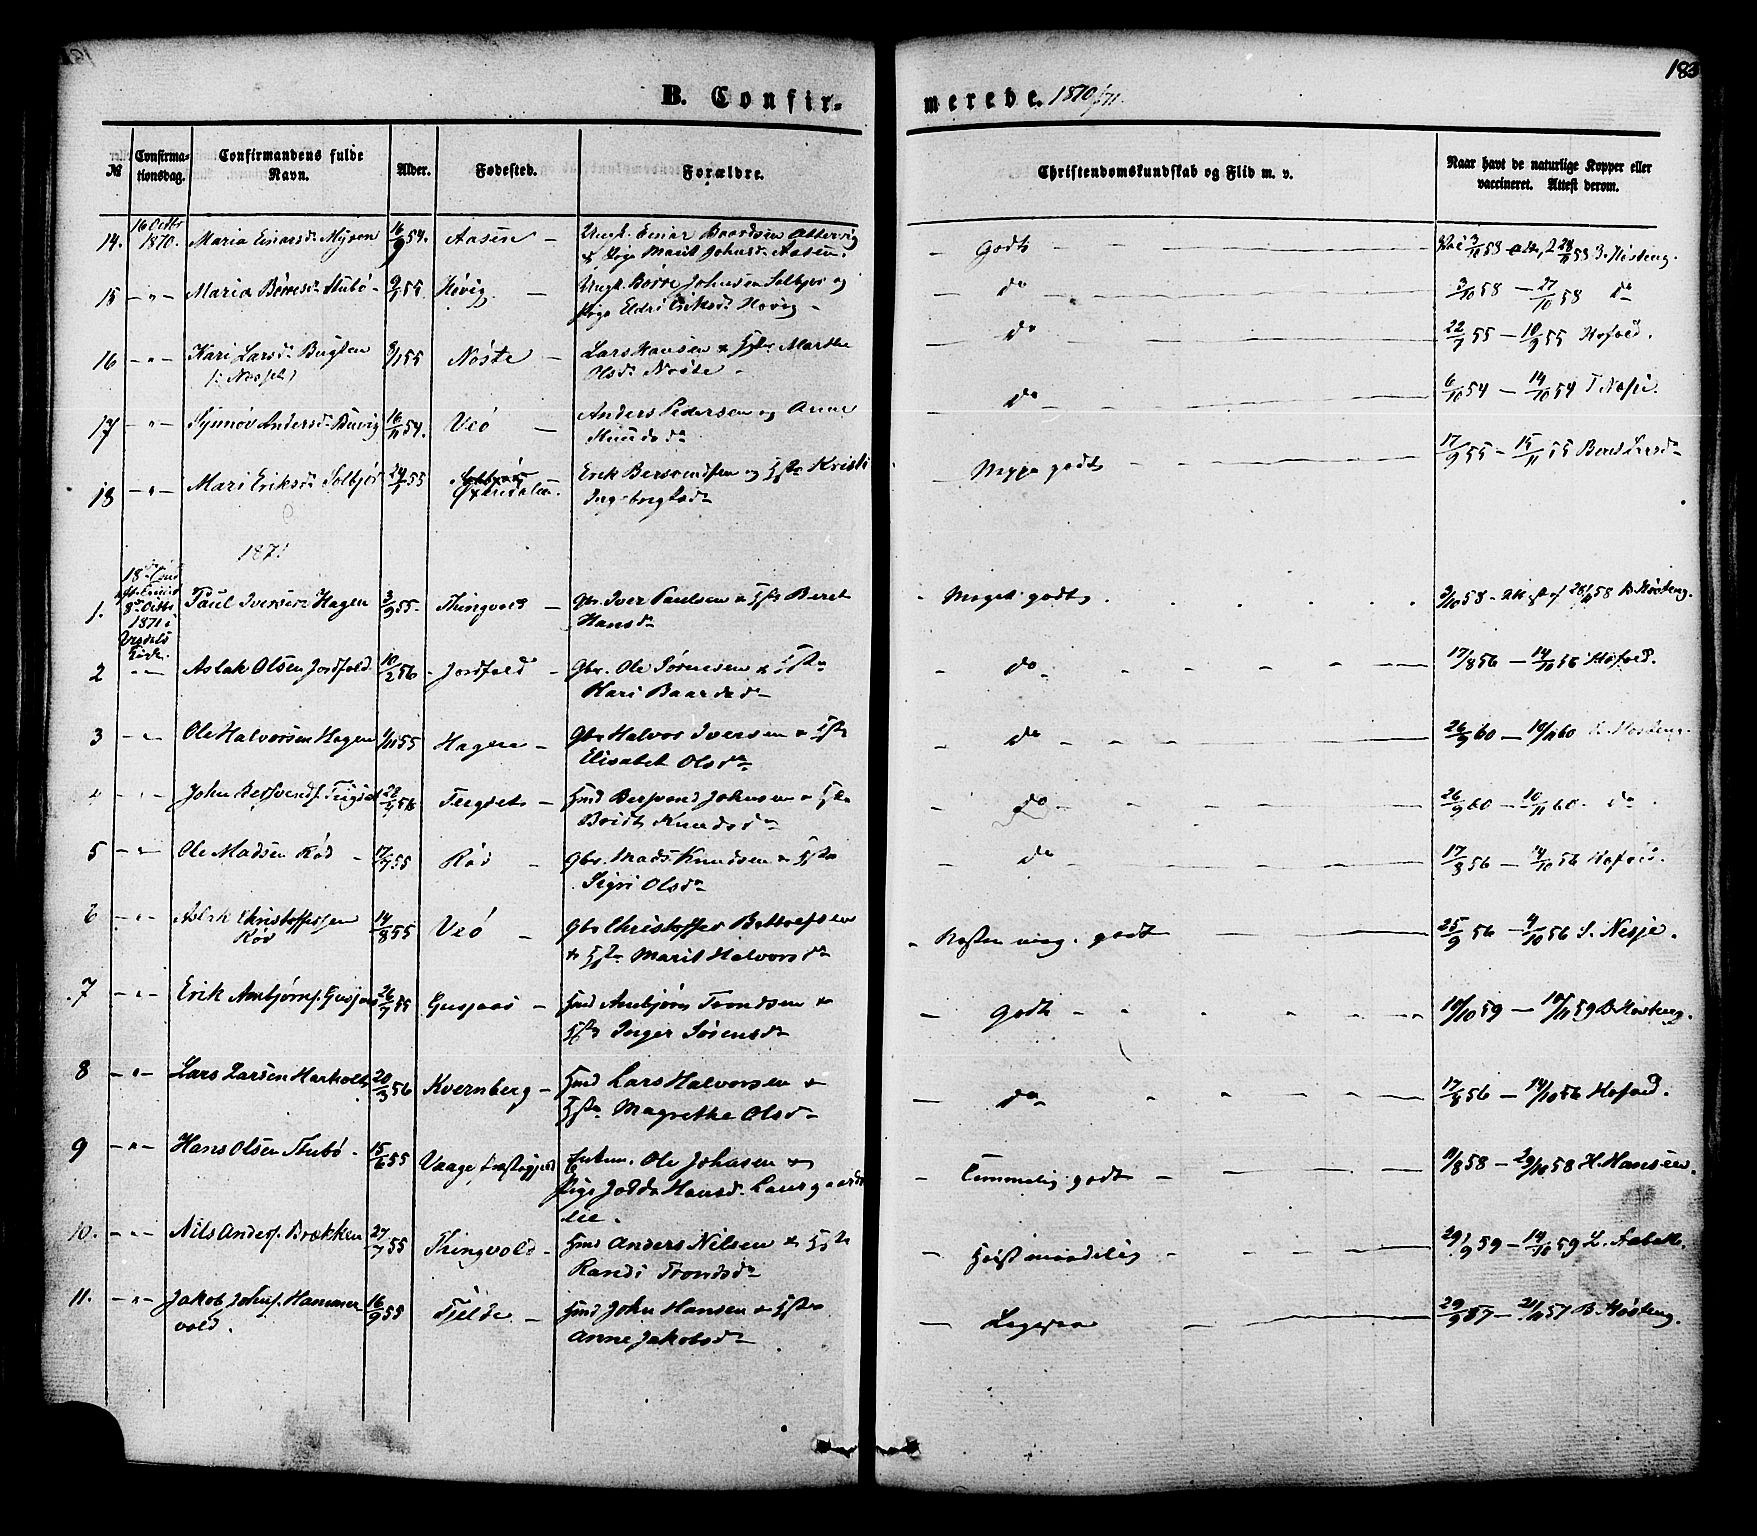 183
B. Confirmerede. 1870/71.
№ Confirmationsdag. Confirmandens fulde Navn. Alder. Fødested. Forældre. Christendomskundskab og Flid m. v. Naar havt de naturlige Kopper eller vaccineret. Attest derom.
14. 16 Octbr 1870. Maria Einarsd. Myren 16/9 54. Aasen – Ungk. Einar Baardsen Ottervig
& Pige Marit Johnsd. Aasen. – Godt – 3/10 58 28/11 58 B. Høsteng.
15 – " – Maria Børresd. Stubø – 9/1 55. Høvig – Ungk. Børre Johnsen Solbjør og
Pige Eldri Eriksd. Høvig – – do – 3/10 58 – 27/10 58 do
16 – " – Kari Larsd. Bugten 8/1 55 Nøste – Lars Hansen & Hst. Marthe
Olsd. Nøste – – do – 22/7 55 – 10/9 55 Hofved.
17 – " – Synnøv Andersd. Buvig 16/11 54. Veø – Anders Pedersen og Anne
Knudsdr – do – 6/10 54 – 14/10 54 Nesje.
18 – " – Mari Eriksd. Solbjør 24/1 55 Øxendalen Erik Bersvendsen og Hst. Kristi
Ingebrigtsdr – Meget godt – 17/9 55 – 15/11 55 Bend Larsdr
1871
1. 8de Octbr 1871 i Paul Iversen Hagen 3/9 55. Thingvold – Gbr. Iver Paulsen & Hst. Beret
Hansdr – Meget godt 3/10 58 – 28/11 58 B. Høsteng.
2 – " – Aslak Olsen Jordfald 10/2 56 – Jordfald – Gbr. Ole Sørensen & Hst.
Kari Baardsd – – do – 17/8 56 – 14/10 56 Hofved.
3 – " – Ole Halvorsen Hagen 1/11 55 Hagen – Gbr Halvor Iversen & Hst.
Elisabet Olsdr – do – 26/9 60 – 10/11 60 B. Høsteng.
4 – " – John Bersvends. Teigset 28/1 56 Teigset – Hmd Bersvend Johnsen & Hst.
Bridt Knudsdr – do – 26/9 60 – 10/11 60. do
5 – " – Ole Madsen Rød – 17/7 55 Rød – Gbr. Mads Knudsen & Hst.
Sigri Olsdr – do – 17/8 56 – 14/10 56 Hofved.
6 – " – Aslak Christoffersen
Rød 14/8 55 Veø – Gbr Christoffer Bottolfsen
& Hst. Marit Halvorsdr – Næsten meg. godt – 25/9 56 – 4/10 56 S. Nesje.
7 – " – Erik Ambjørns. Gusjaas 26/7 55 Gusjaas – Hmd Ambjørn Trondsen &
Hst. Inger Sørensdr – Godt – 10/10 59 – 10/11 59 B. Høsteng.
8 – " – Lars Larsen Harholt 20/3 56 Kvernberg – Hmd Lars Halvorsen &
Hst. Magrethe Olsdr – do – 17/8 56 – 14/10 56 Hofved.
9 – " – Hans Olsen Stubø – 15/6 55 Vaage Præstegjæld Enkem. Ole Johnsen &
Pige Jodda Hansd. Laurgaards
lie. – Temmelig godt – 11/8 58 – 29/10 58 H. Hansen.
10. – " – Nils Anders. Brækken 27/7 55 Thingvold – Hmd Anders Nilsen & Hst.
Randi Trondsdr – Høist maadelig – 29/9 59 – 14/10 59 L. Aabak.
11. – " – Jakob Johns. Hammer
vold. 16/9 55 Tjelde – Hmd John Hansen & Hst.
Anne Jakobsdr – Ligesaa – 29/9 57 – 21/11 57 B. Høsteng.